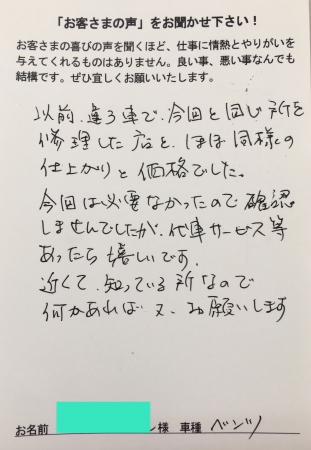 「お客さまの声」をお聞かせ下さい！
お客さまの喜びの声を聞くほど、仕事に情熱とやりがいを
与えてくれるものはありません。良い事、悪い事なんでも
結構です。ぜひ宜しくお願いいたします。
以前、違う車で、今回と同じ所を
修理した店と、ほぼ同様の
仕上がりと価格でした。
今回は必要なかったので確認
しませんでしたが、代車サービス等
あったら嬉しいです。
近くて、知っている所なので
何かあれば又、お願いします
お名前 様 車種 ベンツ